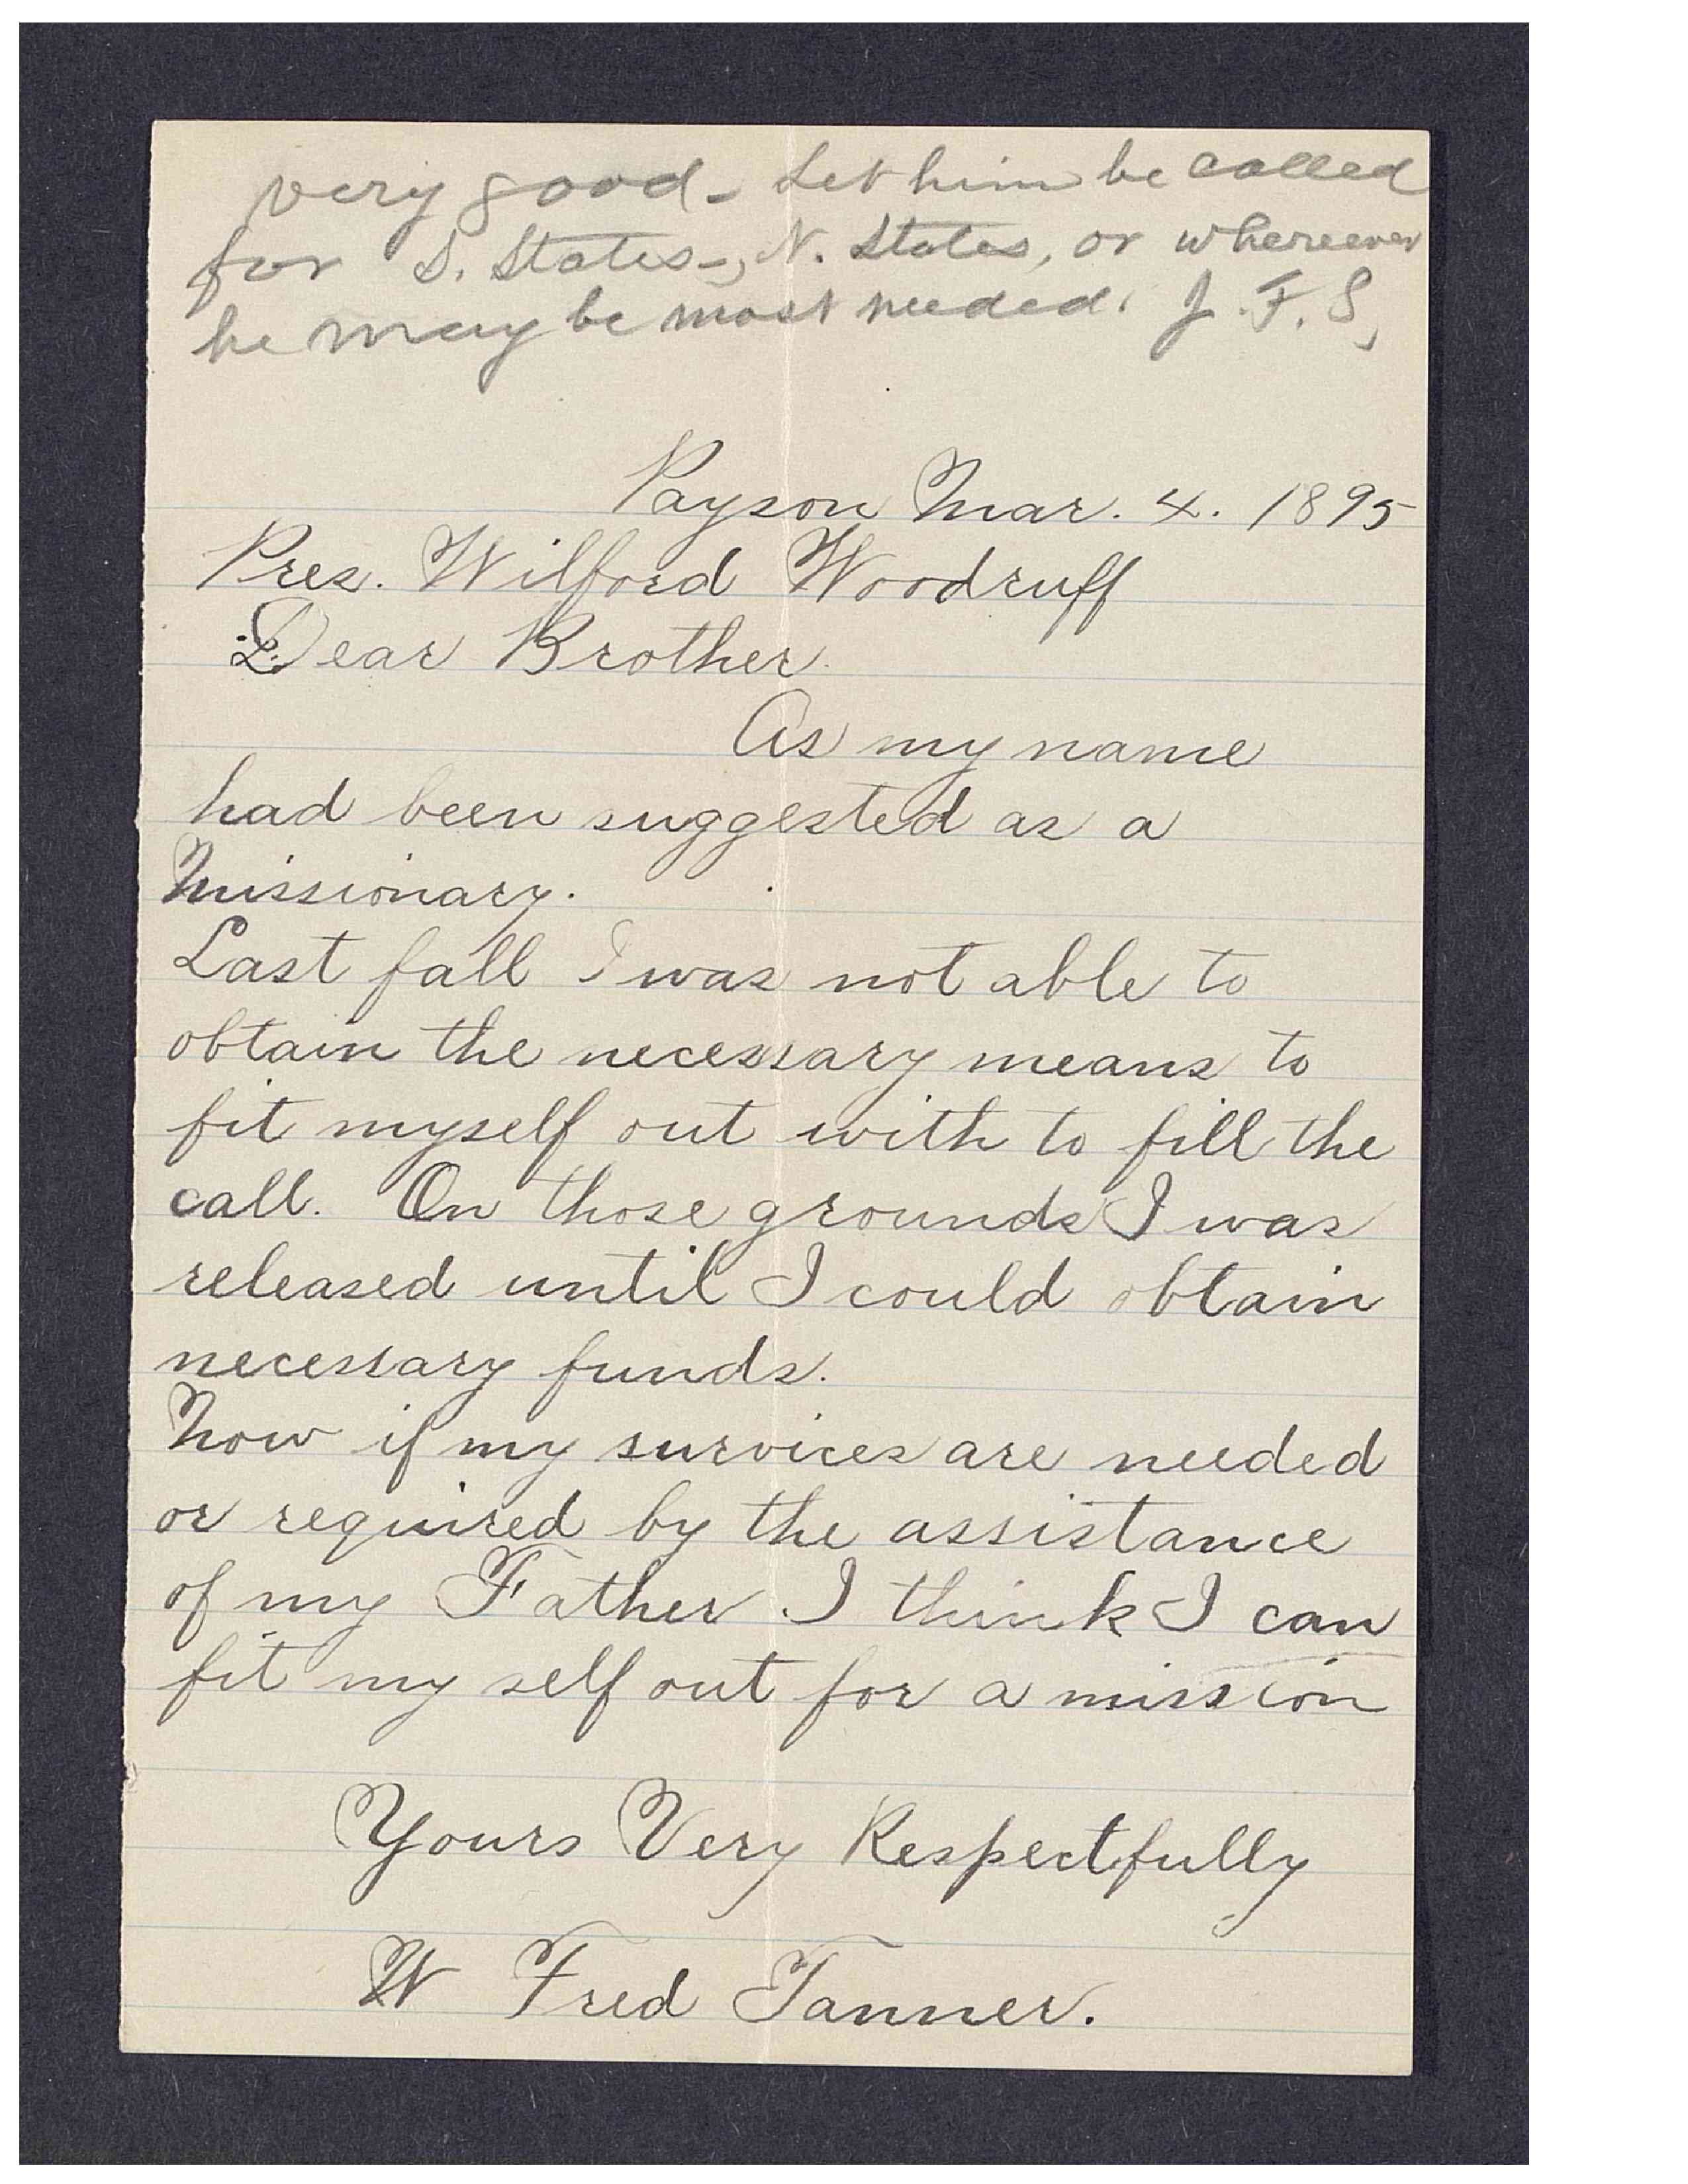 very good - Let him be called
for S. States -, N. States, or whereever
he may be most needed. J. F. S,
Payson Mar. 4. 1895
Pres. Wilford Woodruff
Dear Brother.
As my name
had been suggested as a
Missionary.
Last fall I was not able to
obtain the necessary means to
fit myself out with to fill the
call. On those grounds I was
released until I could obtain
necessary funds.
Now if my survices are needed
or required by the assistance
of my Father I think I can
fit my self out for a mission
Yours Very Respectfully
W Fred Tanner.